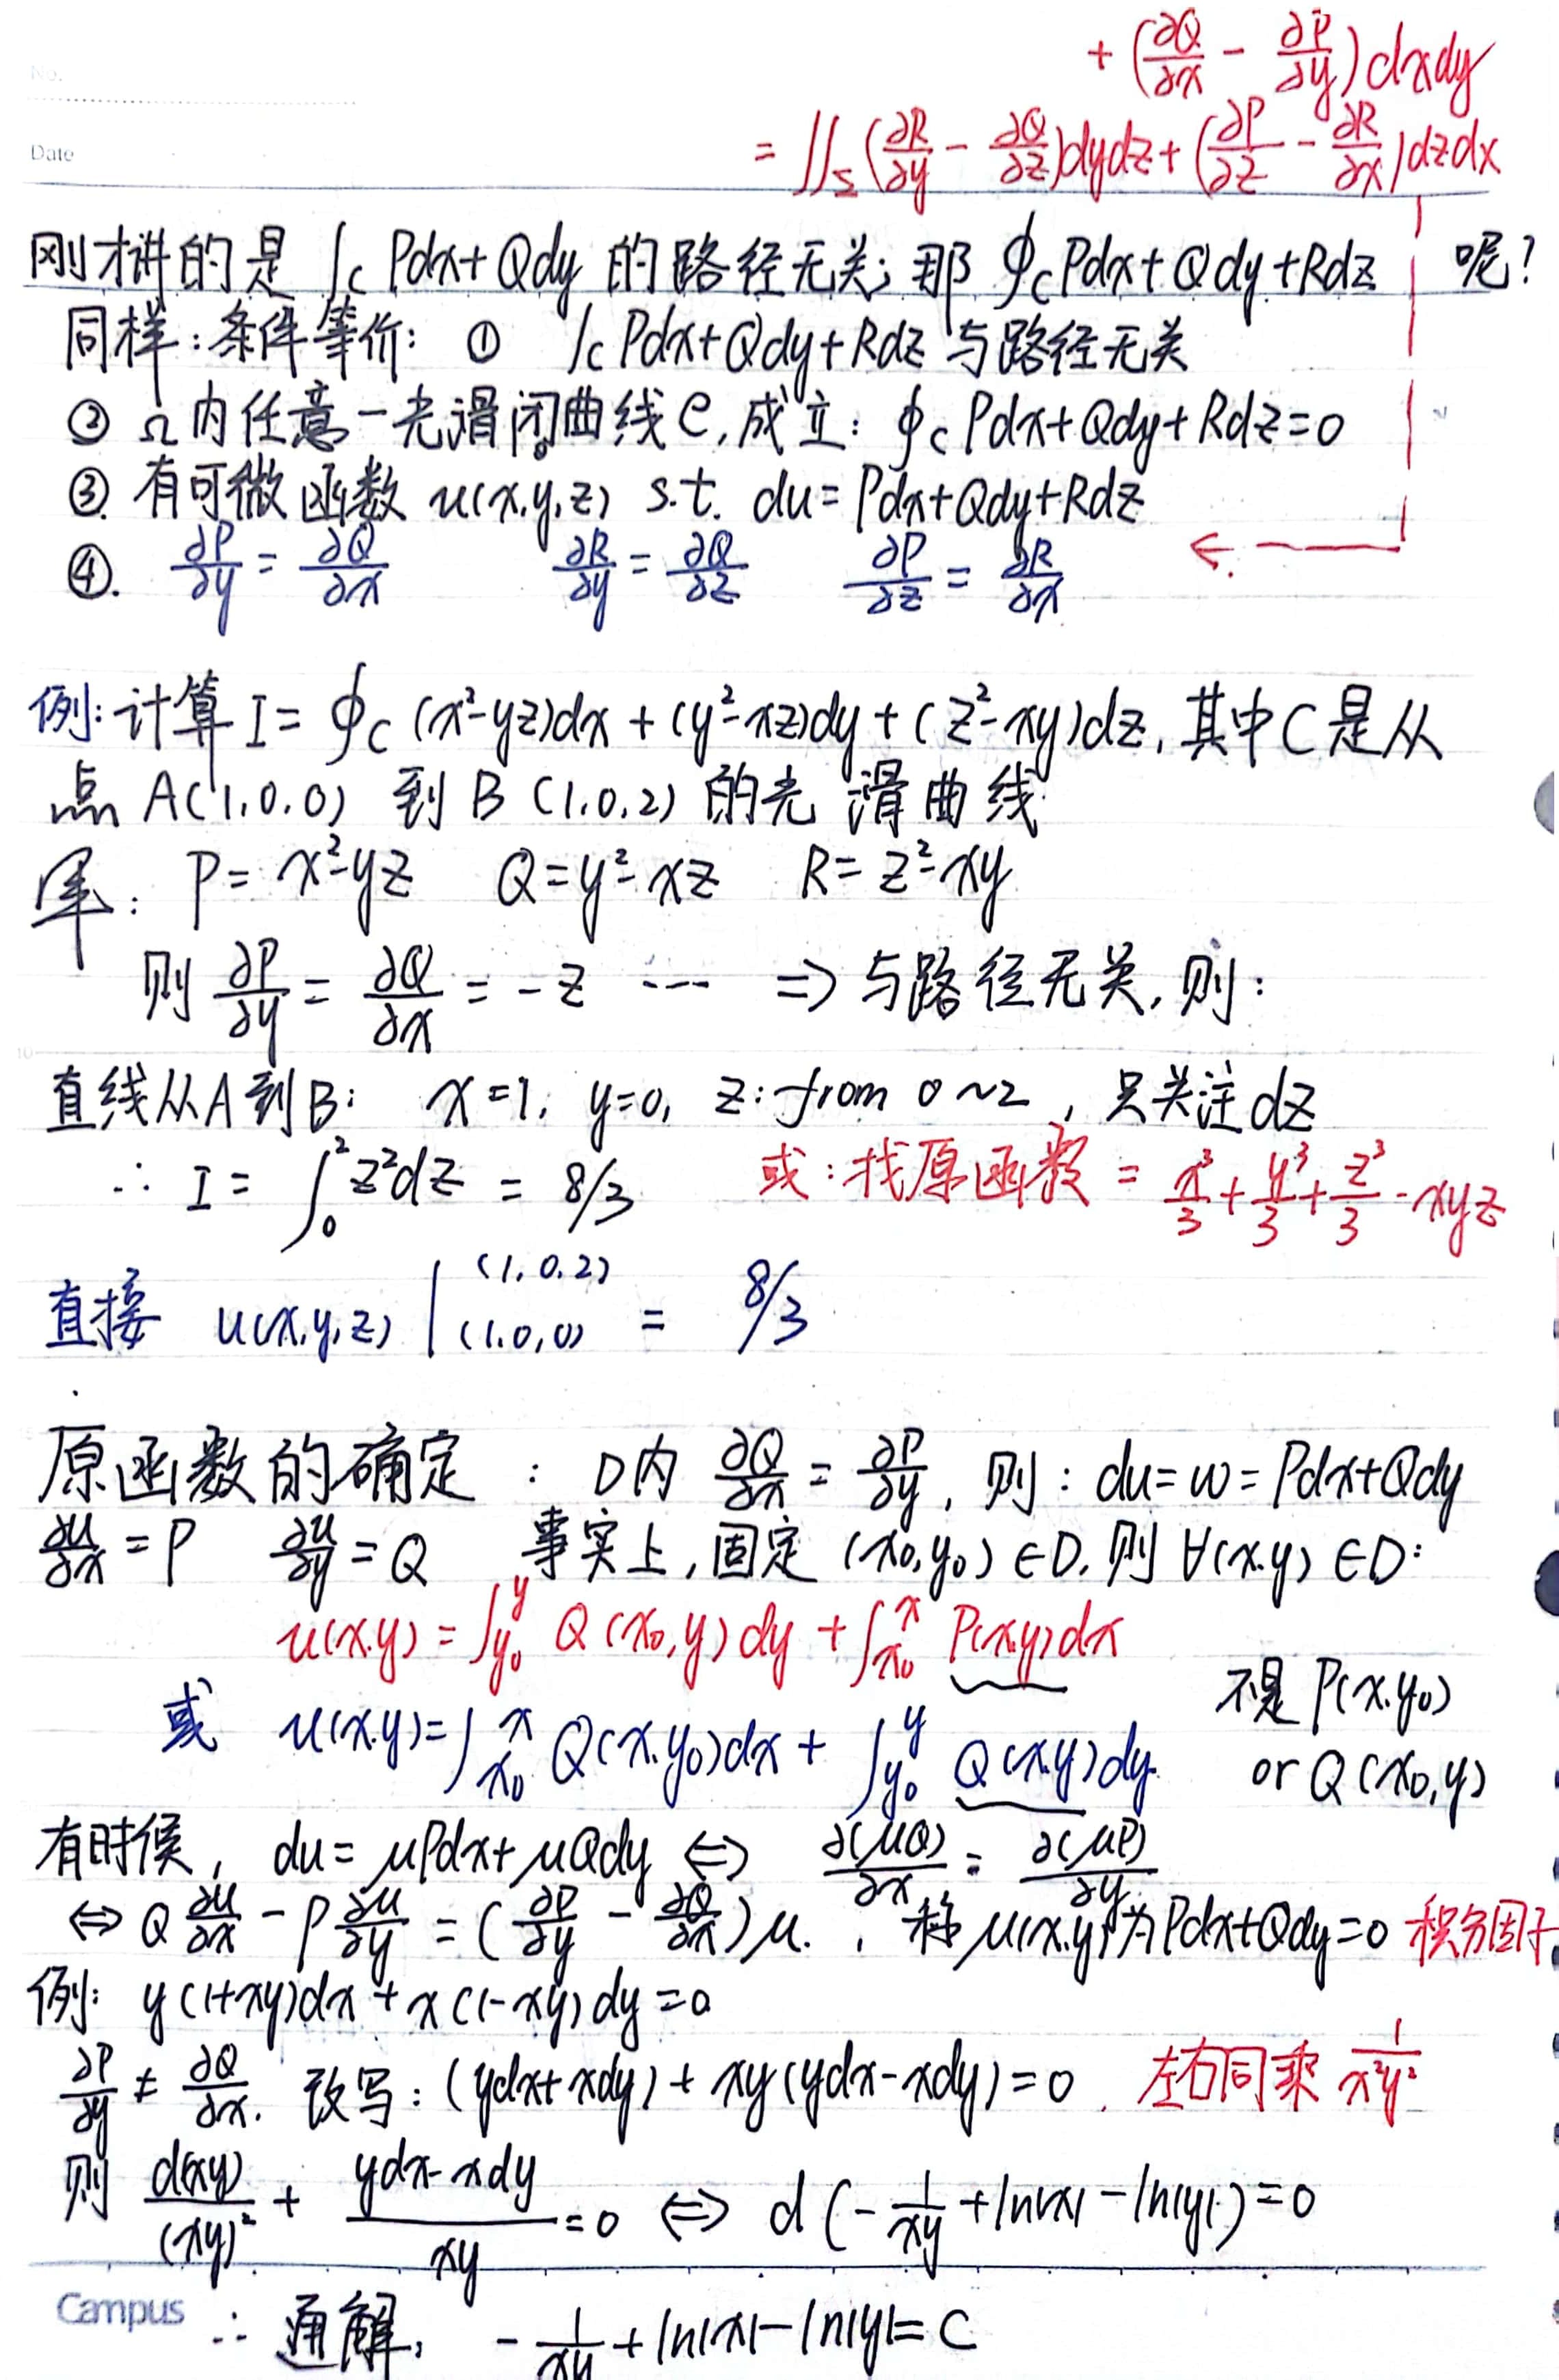 No.
+ (∂Q/∂x - ∂P/∂y) dxdy
Date
= ∬_Σ (∂R/∂y - ∂Q/∂z) dydz + (∂P/∂z - ∂R/∂x) dzdx
刚才讲的是 ∫_C Pdx+Qdy 的路径无关; 那 ∮_C Pdx+Qdy+Rdz 呢?
同样: 条件等价: ① ∫_C Pdx+Qdy+Rdz 与路径无关
② Ω内任意一光滑闭曲线C, 成立: ∮_C Pdx+Qdy+Rdz=0
③ 有可微函数 u(x,y,z) s.t. du=Pdx+Qdy+Rdz
④. ∂P/∂y = ∂Q/∂x ∂R/∂y = ∂Q/∂z ∂P/∂z = ∂R/∂x
例: 计算 I= ∮_C (x²-yz)dx + (y²-xz)dy + (z²-xy)dz, 其中C是从
点 A(1,0,0) 到 B (1,0,2) 的光滑曲线
解: P= x²-yz Q=y²-xz R= z²-xy
则 ∂P/∂y = ∂Q/∂x = -z ... ⇒ 与路径无关, 则:
直线从A到B: x=1, y=0, z: from 0~2, 只关注dz
∴ I= ∫_0^2 z²dz = 8/3 或: 找原函数 = x³/3 + y³/3 + z³/3 - xyz
直接 u(x,y,z) |_(1,0,0)^(1,0,2) = 8/3
原函数的确定 : D内 ∂Q/∂x = ∂P/∂y, 则: du=w=Pdx+Qdy
∂u/∂x = P ∂u/∂y = Q 事实上, 固定 (x₀,y₀)∈D, 则 ∀(x,y)∈D:
u(x,y) = ∫_{y₀}^y Q(x₀,y)dy + ∫_{x₀}^x P(x,y)dx
不是 P(x,y₀)
或 u(x,y)= ∫_{x₀}^x Q(x,y₀)dx + ∫_{y₀}^y Q(x,y)dy
or Q(x₀,y)
有时候, du= μPdx+μQdy ⇔ ∂(μQ)/∂x = ∂(μP)/∂y
⇔ Q ∂μ/∂x - P ∂μ/∂y = (∂P/∂y - ∂Q/∂x)μ. , 称μ(x,y)为Pdx+Qdy=0 积分因子
例: y(1+xy)dx + x(1-xy)dy=0
∂P/∂y ≠ ∂Q/∂x. 改写: (ydx+xdy) + xy(ydx-xdy)=0. 左右同乘 1/x²y²
则 d(xy)/(xy)² + (ydx-xdy)/xy =0 ⇔ d(-1/xy + ln|x| - ln|y|)=0
Campus
∴ 通解: -1/xy + ln|x| - ln|y| = C